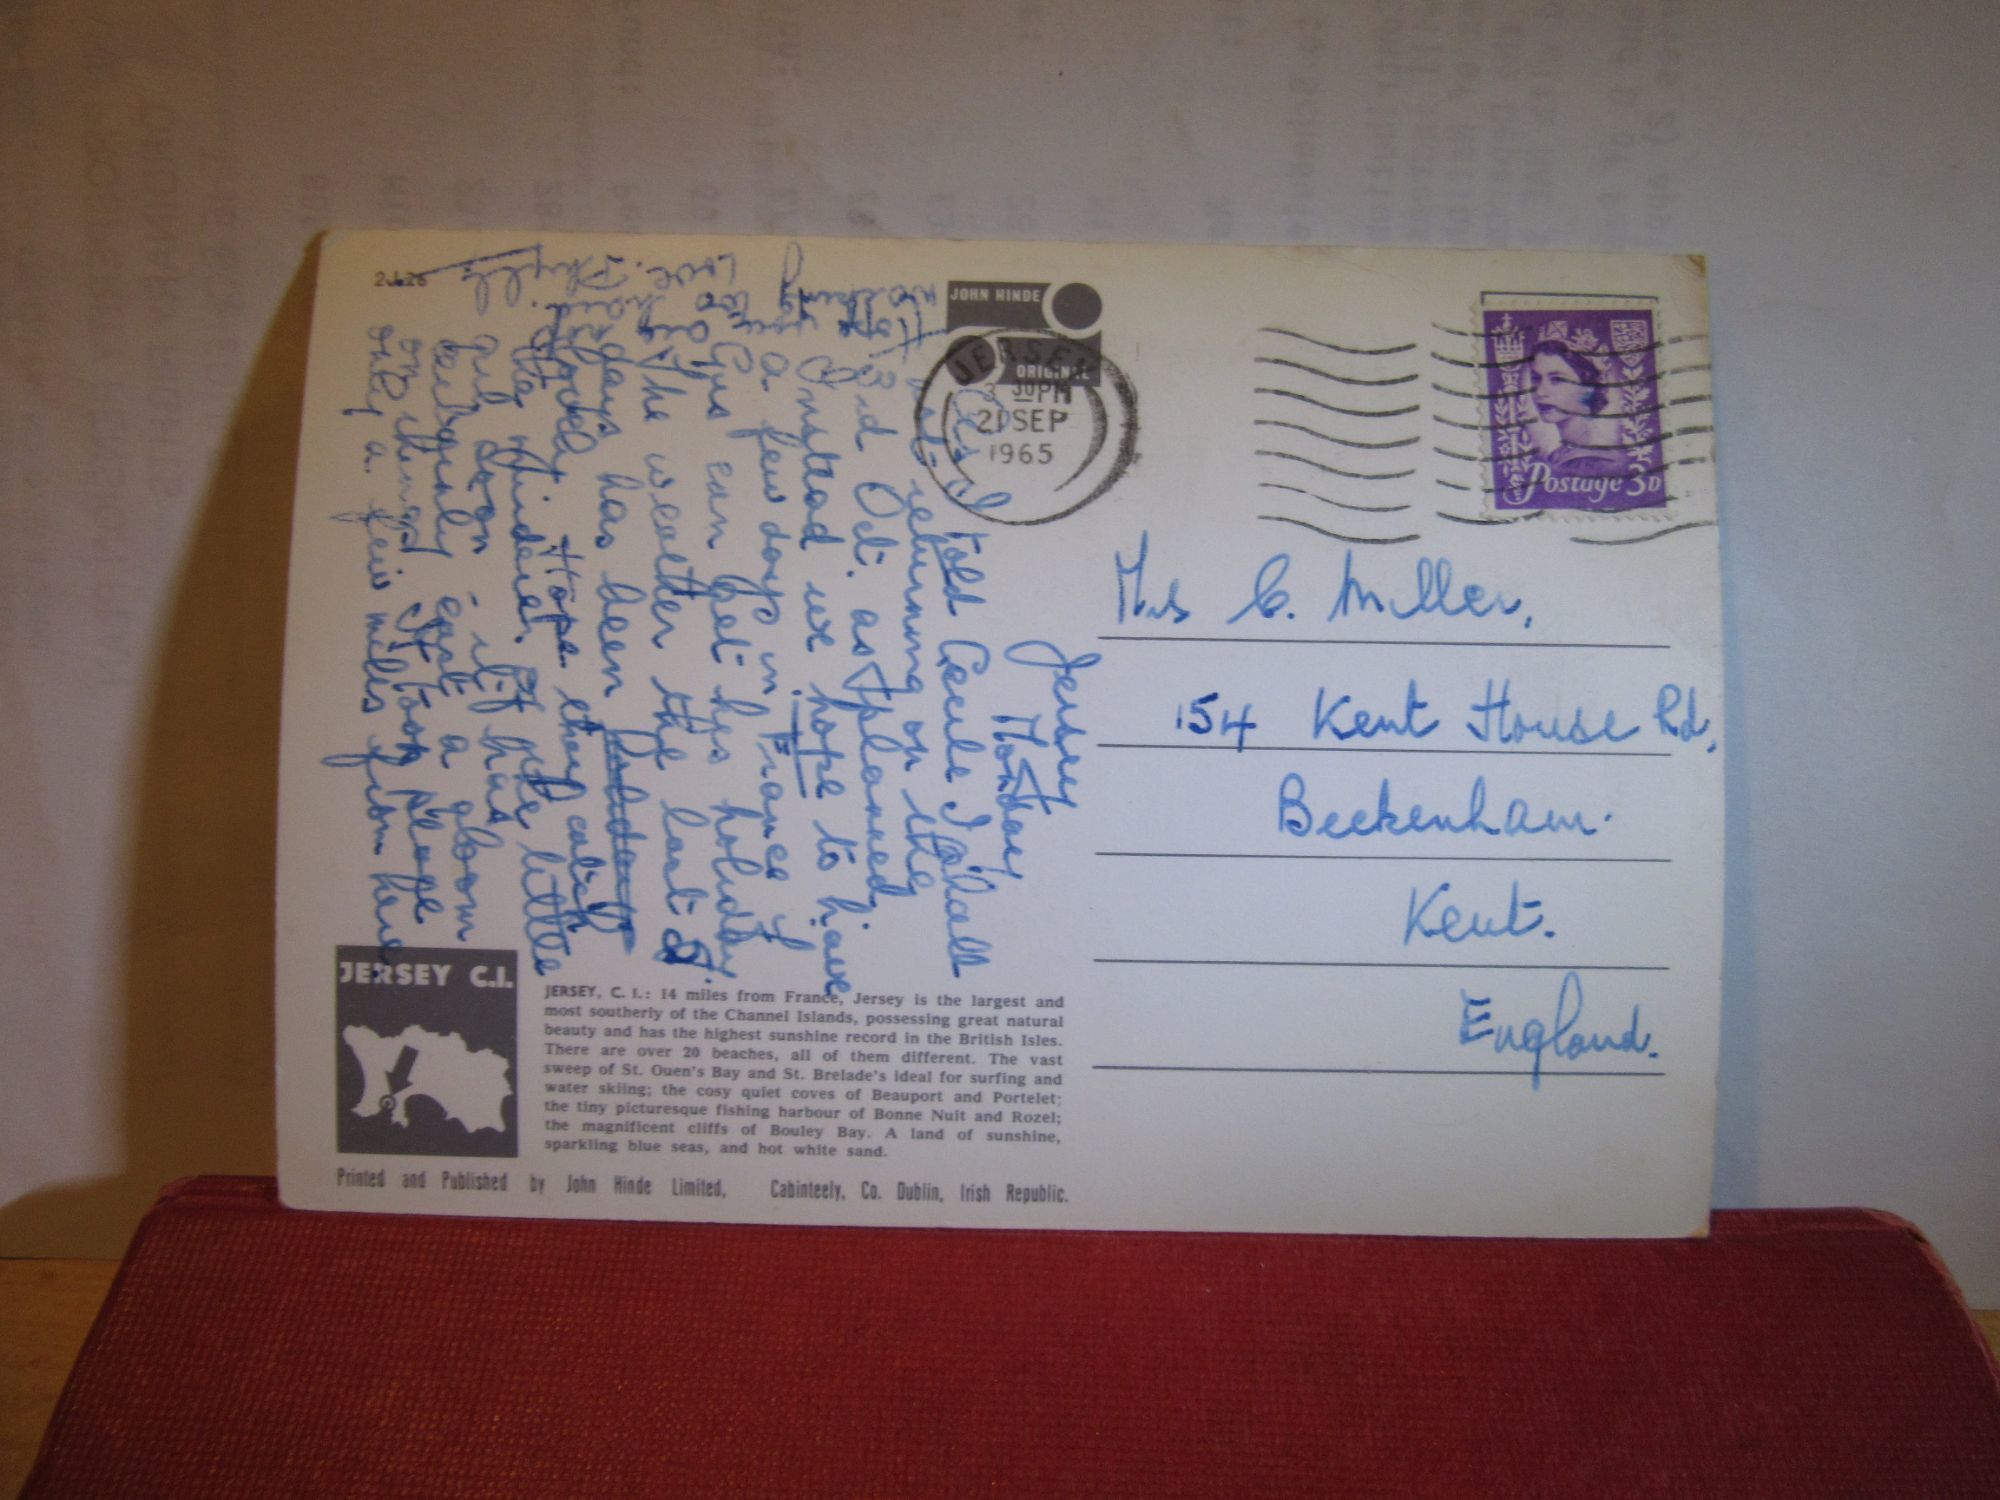 2J.26
JOHN HINDE
ORIGINAL
JERSEY
3 30PM
21 SEP
1965
Postage 3D
Jersey
Monday
Yes I told Cecile I shall
not be returning on the
3rd Oct. as planned,
Instead we hope to have
a few days in France if
Gus can get his holiday.
The weather the last
days has been
lovely. Hope they catch
the murderer of the little
girl soon - it has
certainly cast a gloom
on things. It took place
only a few miles from here
Love. Phyllis
Mrs C. Miller,
154 Kent House Rd,
Beckenham.
Kent.
England.
JERSEY C.I.
JERSEY, C. I.: 14 miles from France, Jersey is the largest and
most southerly of the Channel Islands, possessing great natural
beauty and has the highest sunshine record in the British Isles.
There are over 20 beaches, all of them different. The vast
sweep of St. Ouen's Bay and St. Brelade's ideal for surfing and
water skiing; the cosy quiet coves of Beauport and Portelet;
the tiny picturesque fishing harbour of Bonne Nuit and Rozel;
the magnificent cliffs of Bouley Bay. A land of sunshine,
sparkling blue seas, and hot white sand.
Printed and Published by John Hinde Limited, Cabinteely, Co. Dublin, Irish Republic.